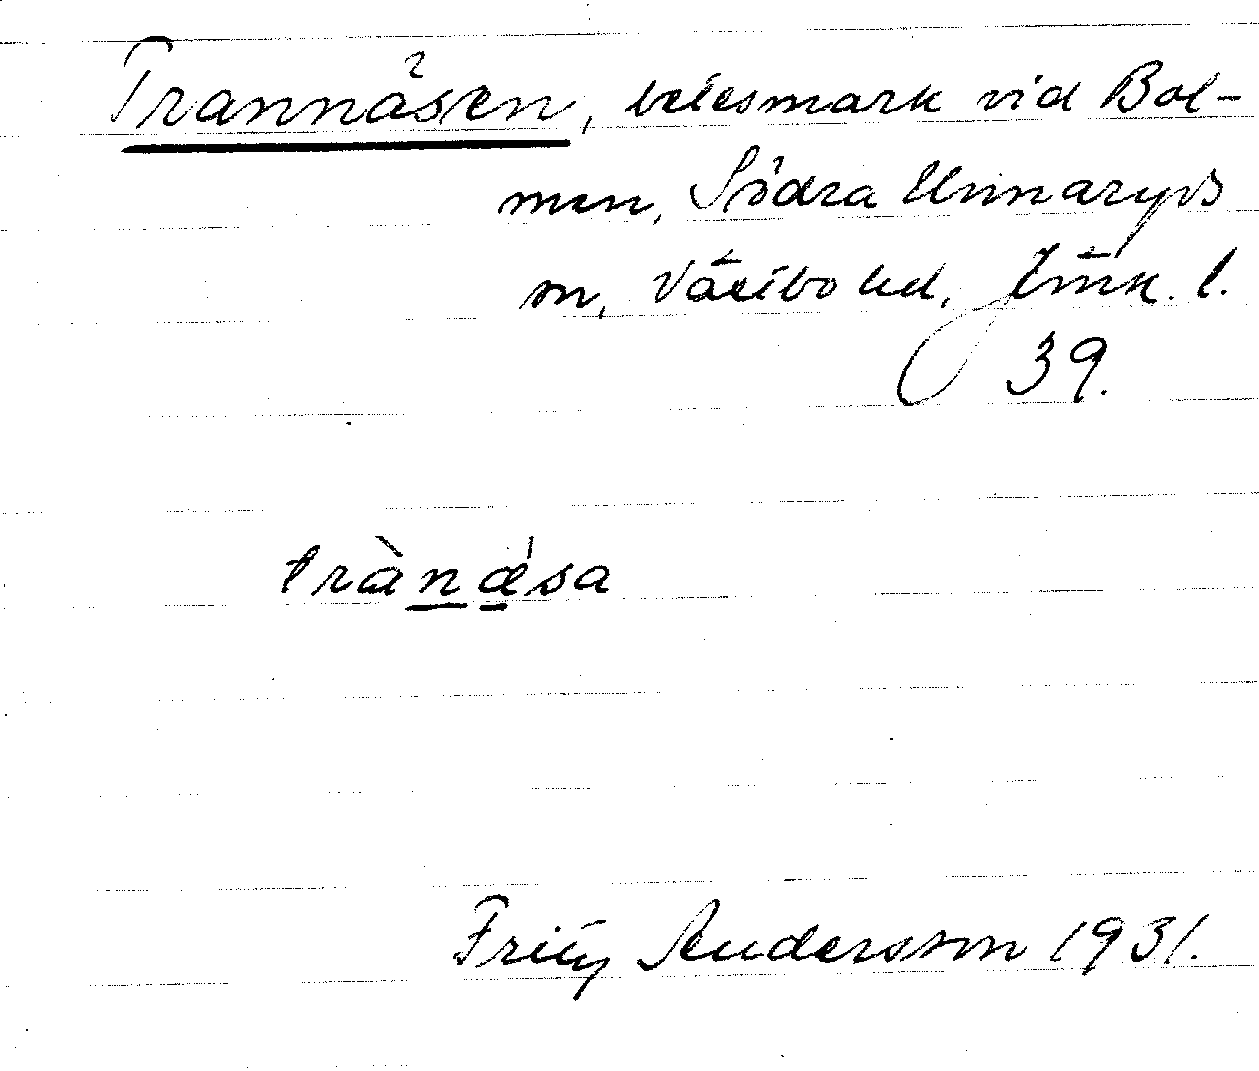 Trannåsen, betesmark vid Bol-
men, Södra Unnaryds
sn, Västbo hd, Jönk. l.
39.
trànása
Fritz Andersson 1931.